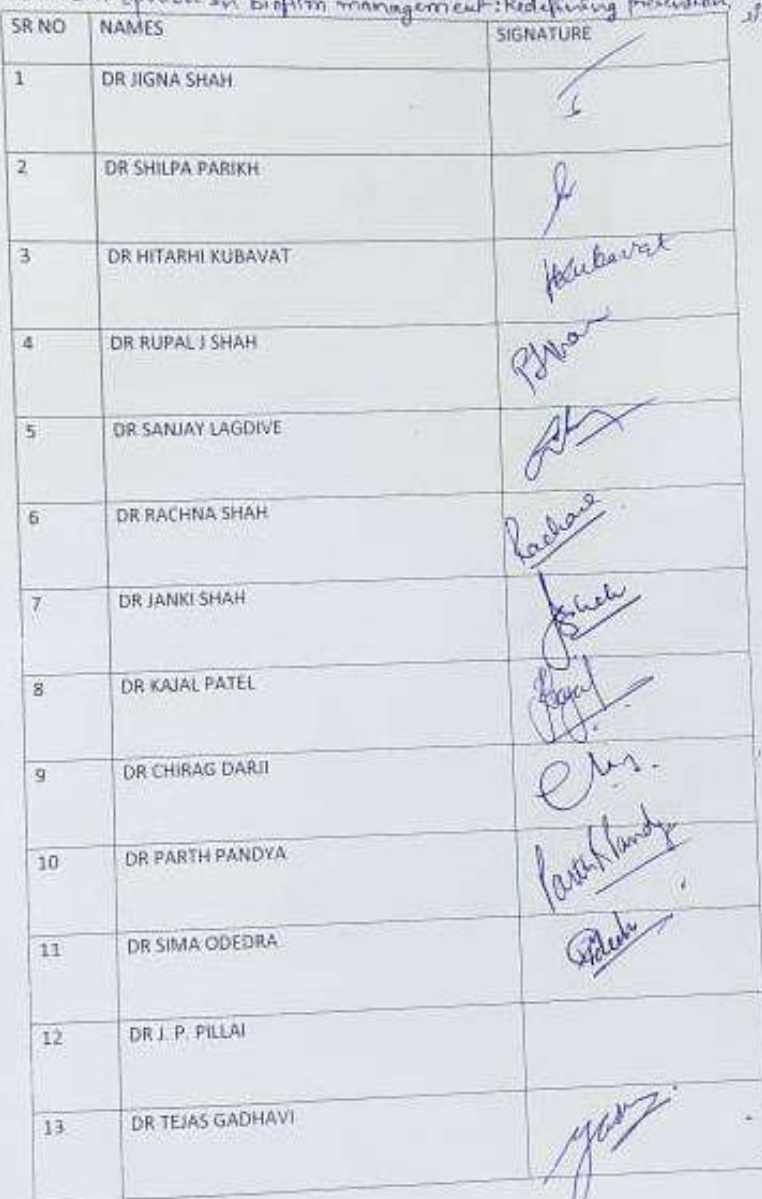 in Biofilm management : Redefining
SR NO NAMES SIGNATURE
1 DR JIGNA SHAH
2 DR SHILPA PARIKH
3 DR HITARHI KUBAVAT HKubavat
4 DR RUPAL J SHAH
5 DR SANJAY LAGDIVE
6 DR RACHNA SHAH
7 DR JANKI SHAH
8 DR KAJAL PATEL Kajal
9 DR CHIRAG DARJI
10 DR PARTH PANDYA
11 DR SIMA ODEDRA
12 DR J. P. PILLAI
13 DR TEJAS GADHAVI